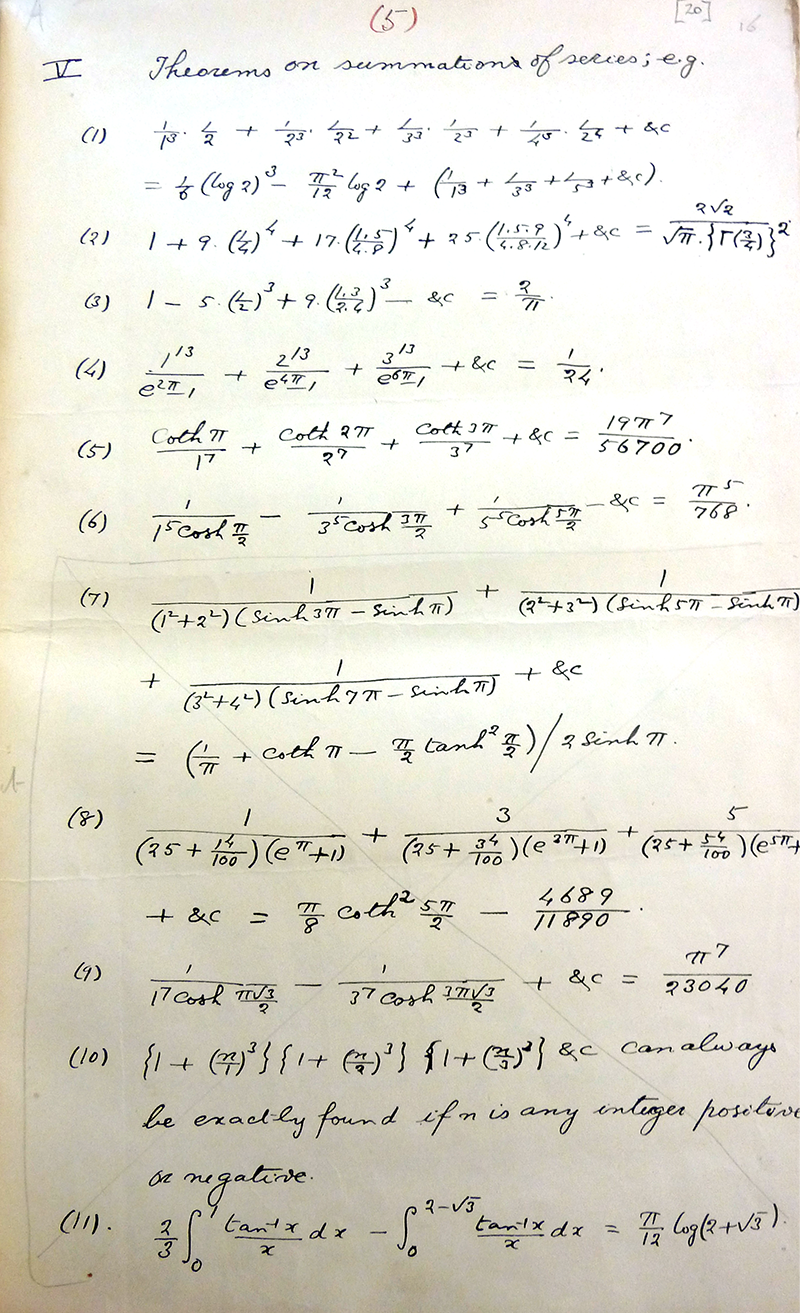 (5) [20] 16
V Theorems on summations of series; e.g.
(1) 1/1³ · 1/2 + 1/2³ · 1/2² + 1/3³ · 1/2³ + 1/4³ · 1/2⁴ + &c
= 1/6 (log 2)³ − π²/12 log 2 + (1/1³ + 1/3³ + 1/5³ + &c).
(2) 1 + 9·(1/4)⁴ + 17·(1.5/4.8)⁴ + 25·(1.5.9/4.8.12)⁴ + &c = 2√2/(√π·{Γ(3/4)}²)
(3) 1 − 5·(1/2)³ + 9·(1.3/2.4)³ − &c = 2/π.
(4) 1¹³/(e^2π−1) + 2¹³/(e^4π−1) + 3¹³/(e^6π−1) + &c = 1/24.
(5) coth π/1⁷ + coth 2π/2⁷ + coth 3π/3⁷ + &c = 19π⁷/56700.
(6) 1/(1⁵ cosh π/2) − 1/(3⁵ cosh 3π/2) + 1/(5⁵ cosh 5π/2) − &c = π⁵/768.
(7) 1/((1²+2²)(sinh 3π − sinh π)) + 1/((2²+3²)(sinh 5π − sinh π))
+ 1/((3²+4²)(sinh 7π − sinh π)) + &c
= (1/π + coth π − π/2 tanh² π/2)/2 sinh π.
(8) 1/((25 + 1⁴/100)(e^π+1)) + 3/((25 + 3⁴/100)(e^3π+1)) + 5/((25 + 5⁴/100)(e^5π+
+ &c = π/8 coth² 5π/2 − 4689/11890.
(9) 1/(1⁷ cosh π√3/2) − 1/(3⁷ cosh 3π√3/2) + &c = π⁷/23040
(10) {1 + (n/1)³}{1 + (n/2)³}{1 + (n/3)³} &c can always
be exactly found if n is any integer positive
or negative.
(11). 2/3 ∫₀¹ tan⁻¹x/x dx − ∫₀^(2−√3) tan⁻¹x/x dx = π/12 log(2+√3).